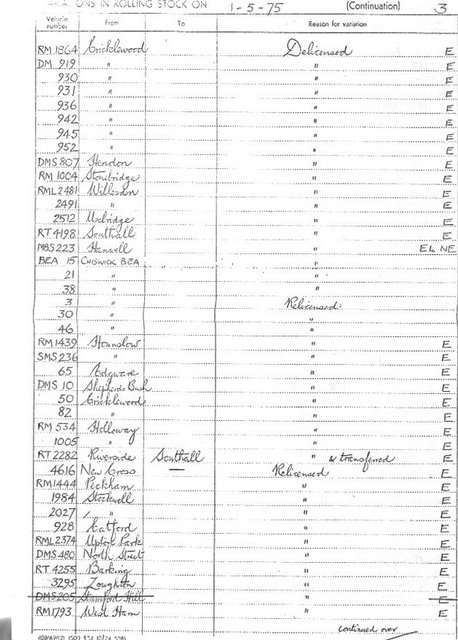 IN ROLLING STOCK ON 1-5-75 (Continuation) 3
Vehicle number From To Reason for variation
RM 1864 Cricklewood Delicensed E
DM 919 " " E
930 " " E
931 " " E
936 " " E
942 " " E
945 " " E
952 " " E
DMS 807 Hendon " E
RM 1004 Stonebridge " E
RML 2481 Willesden " E
2491 " " E
2512 Uxbridge " E
RT 4198 Southall " E
MBS 223 Hanwell " EL NE
BEA 15 CHISWICK BEA "
21 " "
38 " "
3 " Relicensed
30 " "
46 " "
RM 1439 Hounslow " E
SMS 236 " " E
65 Edgware " E
DMS 10 Shepherds Bush " E
50 Cricklewood " E
82 " " E
RM 534 Holloway " E
1005 " " E
RT 2282 Riverside Southall " & transferred E
4616 New Cross — Relicensed E
RM 1444 Peckham " E
1984 Stockwell " E
2027 " " E
928 Catford " E
RML 2374 Upton Park " E
DMS 480 North Street " E
RT 4255 Barking " E
3295 Loughton " E
DMS 205 Stamford Hill " E
RM 1793 West Ham " E
continued over